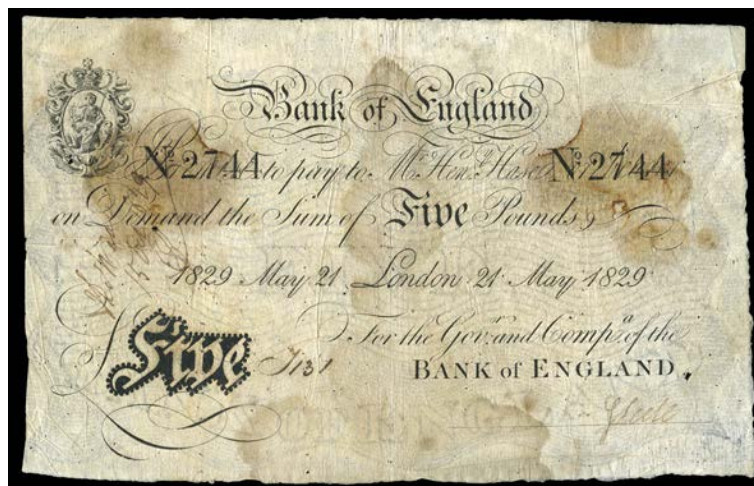 Bank of England
Nº 2744 to pay to Mr. Hen. Hase Nº 2744
on Demand the Sum of Five Pounds
1829 May 21 London 21 May 1829
For the Govr. and Compa. of the
Five
BANK of ENGLAND.